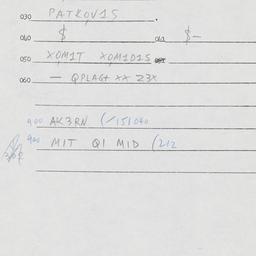 030 PATROV15.
040 $ 041 $-
050 XOM1T XOM1D1S
060 — QPLAG+ XX Z3X
900 AK3RN (/151040
900 MIT Q1 MID (212